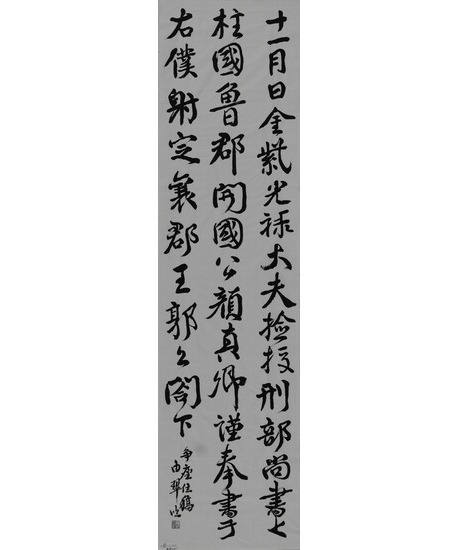 十一月日金紫光禄大夫撿挍刑部尚書上
柱國魯郡開國公顏真卿謹奉書于
右僕射定襄郡王郭公閤下
争座位稿